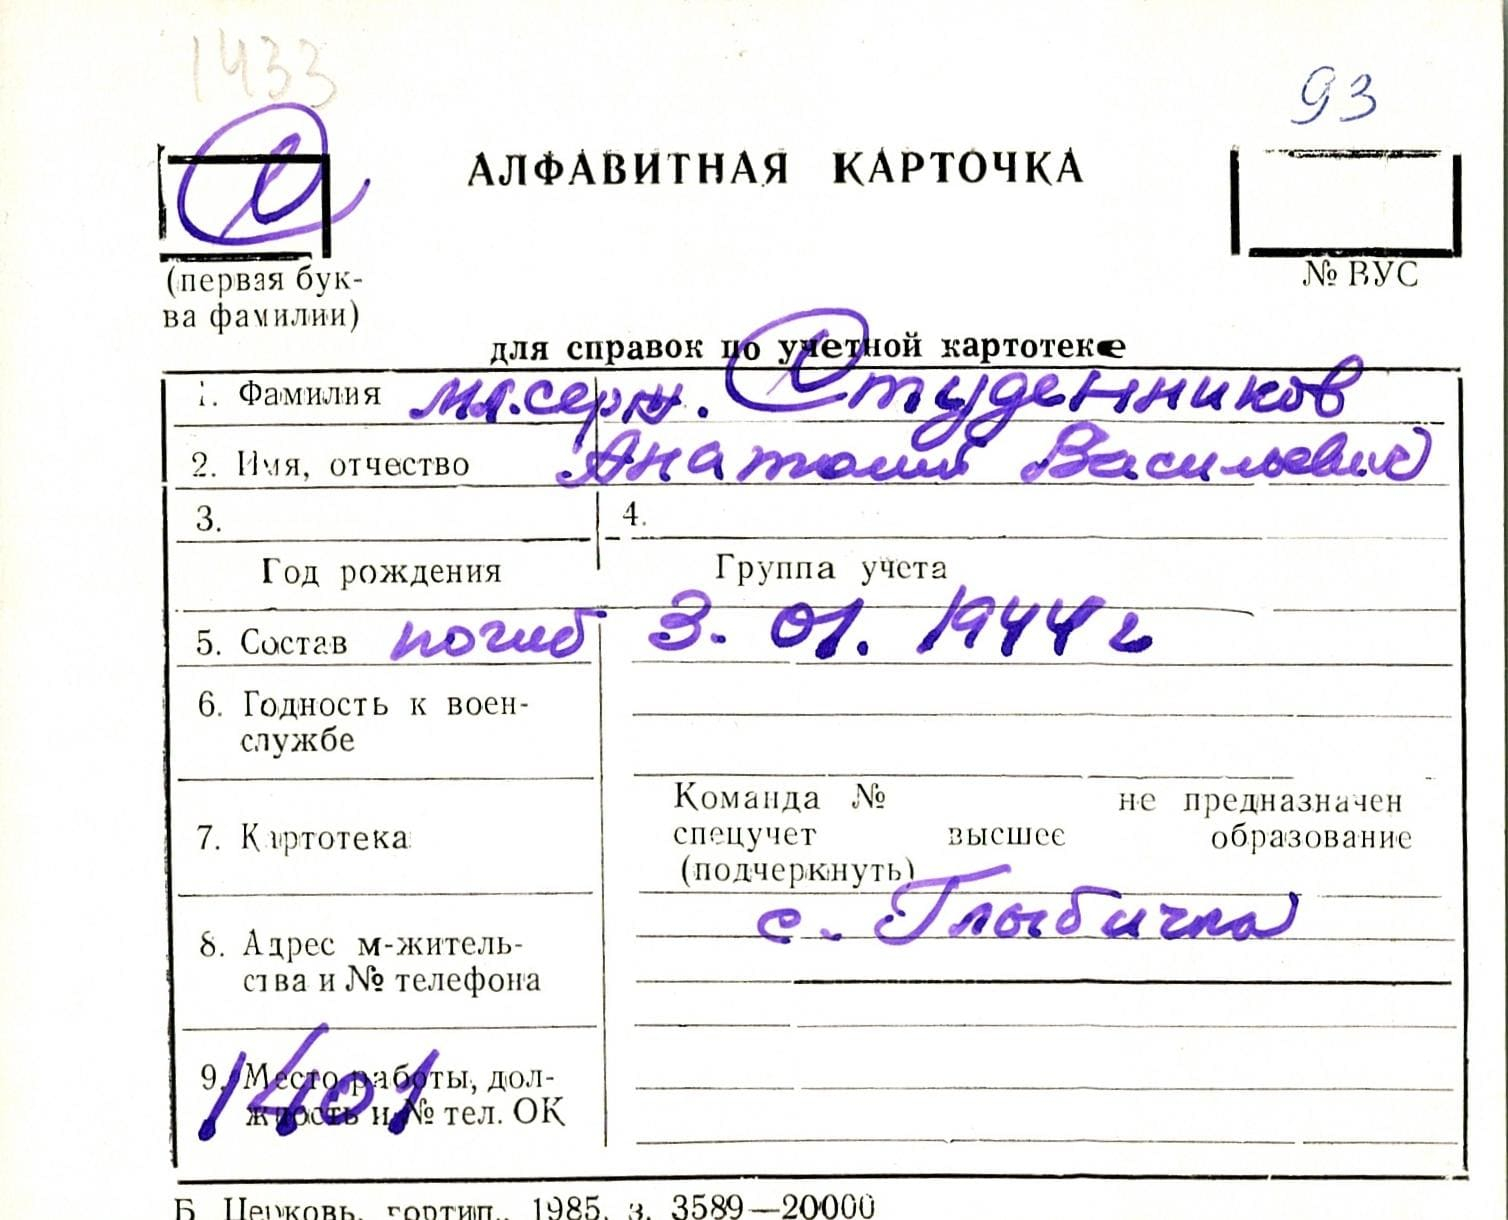 1433
93
АЛФАВИТНАЯ КАРТОЧКА
(первая бук-
ва фамилии)
№ ВУС
для справок по учетной картотеке
1. Фамилия мл. серж. Студенников
2. Имя, отчество Анатолий Васильевич
3. 4.
Год рождения Группа учета
5. Состав погиб 3. 01. 1944 г
6. Годность к воен-
службе
Команда № не предназначен
7. Картотека спецучет высшее образование
(подчеркнуть)
с. Глыбичка
8. Адрес м-житель-
ства и № телефона
9. Место работы, дол-
жность и № тел. ОК
1401
Б. Церковь, гортип., 1985, з. 3589—20000